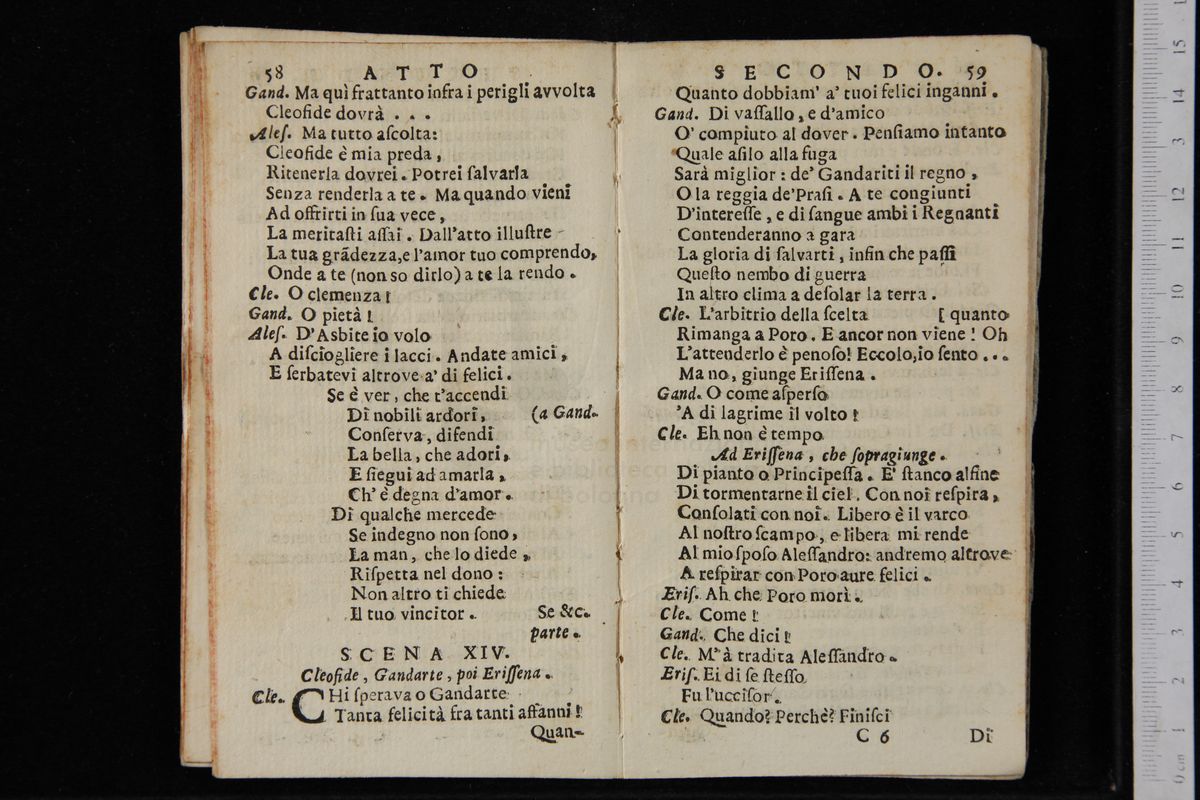 58 ATTO
Gand. Ma quì frattanto infra i perigli avvolta
Cleofide dovrà . . .
Aleſ. Ma tutto aſcolta:
Cleofide è mia preda,
Ritenerla dovrei. Potrei ſalvarla
Senza renderla a te. Ma quando vieni
Ad offrirti in ſua vece,
La meritaſti aſſai. Dall'atto illuſtre
La tua grãdezza,e l'amor tuo comprendo,
Onde a te (non so dirlo) a te la rendo.
Cle. O clemenza!
Gand. O pietà!
Aleſ. D'Asbite io volo
A diſciogliere i lacci. Andate amici,
E ſerbatevi altrove a' dì felici.
Se è ver, che t'accendi
Di nobili ardori, (a Gand.
Conſerva, difendi
La bella, che adori,
E ſiegui ad amarla,
Ch' è degna d'amor.
Di qualche mercede
Se indegno non ſono,
La man, che lo diede,
Riſpetta nel dono:
Non altro ti chiede
Il tuo vincitor. Se &c.
parte.
SCENA XIV.
Cleofide, Gandarte, poi Eriſſena.
Cle. CHi ſperava o Gandarte
Tanta felicità fra tanti affanni!
Quan-
SECONDO. 59
Quanto dobbiam' a' tuoi felici inganni.
Gand. Di vaſſallo, e d'amico
O' compiuto al dover. Penſiamo intanto
Quale aſilo alla fuga
Sarà miglior: de' Gandariti il regno,
O la reggia de'Praſi. A te congiunti
D'intereſſe, e di ſangue ambi i Regnanti
Contenderanno a gara
La gloria di ſalvarti, infin che paſſi
Queſto nembo di guerra
In altro clima a deſolar la terra.
Cle. L'arbitrio della ſcelta [ quanto
Rimanga a Poro. E ancor non viene! Oh
L'attenderlo è penoſo! Eccolo,io ſento ...
Ma no, giunge Eriſſena.
Gand. O come aſperſo
'A di lagrime il volto!
Cle. Eh non è tempo
Ad Eriſſena, che ſopragiunge.
Di pianto o Principeſſa. E' ſtanco alfine
Di tormentarne il ciel. Con noi reſpira,
Conſolati con noi. Libero è il varco
Al noſtro ſcampo, e libera mi rende
Al mio ſpoſo Aleſſandro: andremo altrove
A reſpirar con Poro aure felici.
Eriſ. Ah che Poro morì.
Cle. Come!
Gand. Che dici!
Cle. M'à tradita Aleſſandro.
Eriſ. Ei di ſe ſteſſo
Fu l'ucciſor.
Cle. Quando? Perchè? Finiſci
C 6 Di